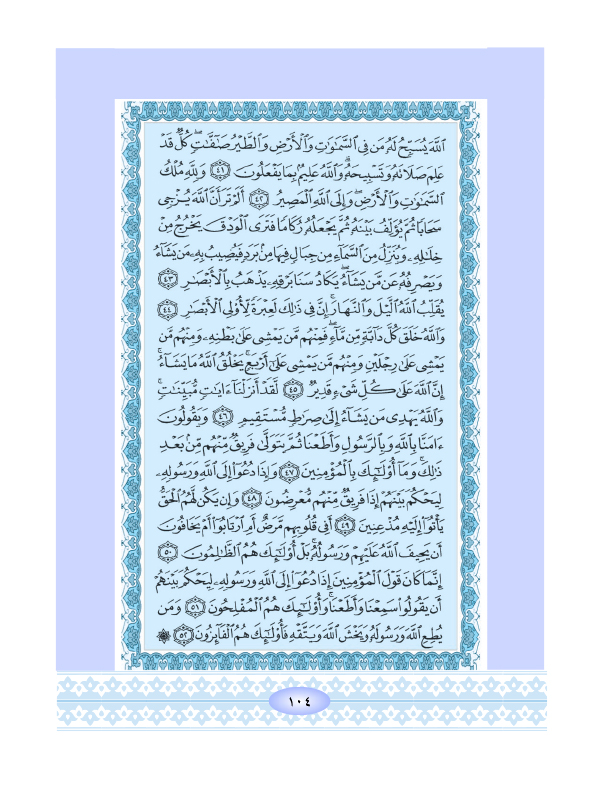 ٱللَّهَ يُسَبِّحُ لَهُۥ مَن فِى ٱلسَّمَٰوَٰتِ وَٱلْأَرْضِ وَٱلطَّيْرُ صَٰٓفَّٰتٍۖ كُلٌّ قَدْ
عَلِمَ صَلَاتَهُۥ وَتَسْبِيحَهُۥۗ وَٱللَّهُ عَلِيمٌۢ بِمَا يَفْعَلُونَ ٤١ وَلِلَّهِ مُلْكُ
ٱلسَّمَٰوَٰتِ وَٱلْأَرْضِۖ وَإِلَى ٱللَّهِ ٱلْمَصِيرُ ٤٢ أَلَمْ تَرَ أَنَّ ٱللَّهَ يُزْجِى
سَحَابًا ثُمَّ يُؤَلِّفُ بَيْنَهُۥ ثُمَّ يَجْعَلُهُۥ رُكَامًا فَتَرَى ٱلْوَدْقَ يَخْرُجُ مِنْ
خِلَٰلِهِۦ وَيُنَزِّلُ مِنَ ٱلسَّمَآءِ مِن جِبَالٍ فِيهَا مِنۢ بَرَدٍ فَيُصِيبُ بِهِۦ مَن يَشَآءُ
وَيَصْرِفُهُۥ عَن مَّن يَشَآءُۖ يَكَادُ سَنَا بَرْقِهِۦ يَذْهَبُ بِٱلْأَبْصَٰرِ ٤٣
يُقَلِّبُ ٱللَّهُ ٱلَّيْلَ وَٱلنَّهَارَۚ إِنَّ فِى ذَٰلِكَ لَعِبْرَةً لِّأُو۟لِى ٱلْأَبْصَٰرِ ٤٤
وَٱللَّهُ خَلَقَ كُلَّ دَآبَّةٍ مِّن مَّآءٍۖ فَمِنْهُم مَّن يَمْشِى عَلَىٰ بَطْنِهِۦ وَمِنْهُم مَّن
يَمْشِى عَلَىٰ رِجْلَيْنِ وَمِنْهُم مَّن يَمْشِى عَلَىٰٓ أَرْبَعٍۚ يَخْلُقُ ٱللَّهُ مَا يَشَآءُۚ
إِنَّ ٱللَّهَ عَلَىٰ كُلِّ شَىْءٍ قَدِيرٌ ٤٥ لَّقَدْ أَنزَلْنَآ ءَايَٰتٍ مُّبَيِّنَٰتٍۚ
وَٱللَّهُ يَهْدِى مَن يَشَآءُ إِلَىٰ صِرَٰطٍ مُّسْتَقِيمٍ ٤٦ وَيَقُولُونَ
ءَامَنَّا بِٱللَّهِ وَبِٱلرَّسُولِ وَأَطَعْنَا ثُمَّ يَتَوَلَّىٰ فَرِيقٌ مِّنْهُم مِّنۢ بَعْدِ
ذَٰلِكَۚ وَمَآ أُو۟لَٰٓئِكَ بِٱلْمُؤْمِنِينَ ٤٧ وَإِذَا دُعُوٓا۟ إِلَى ٱللَّهِ وَرَسُولِهِۦ
لِيَحْكُمَ بَيْنَهُمْ إِذَا فَرِيقٌ مِّنْهُم مُّعْرِضُونَ ٤٨ وَإِن يَكُن لَّهُمُ ٱلْحَقُّ
يَأْتُوٓا۟ إِلَيْهِ مُذْعِنِينَ ٤٩ أَفِى قُلُوبِهِم مَّرَضٌ أَمِ ٱرْتَابُوٓا۟ أَمْ يَخَافُونَ
أَن يَحِيفَ ٱللَّهُ عَلَيْهِمْ وَرَسُولُهُۥۚ بَلْ أُو۟لَٰٓئِكَ هُمُ ٱلظَّٰلِمُونَ ٥٠
إِنَّمَا كَانَ قَوْلَ ٱلْمُؤْمِنِينَ إِذَا دُعُوٓا۟ إِلَى ٱللَّهِ وَرَسُولِهِۦ لِيَحْكُمَ بَيْنَهُمْ
أَن يَقُولُوا۟ سَمِعْنَا وَأَطَعْنَاۚ وَأُو۟لَٰٓئِكَ هُمُ ٱلْمُفْلِحُونَ ٥١ وَمَن
يُطِعِ ٱللَّهَ وَرَسُولَهُۥ وَيَخْشَ ٱللَّهَ وَيَتَّقْهِ فَأُو۟لَٰٓئِكَ هُمُ ٱلْفَآئِزُونَ ٥٢
١٠٤